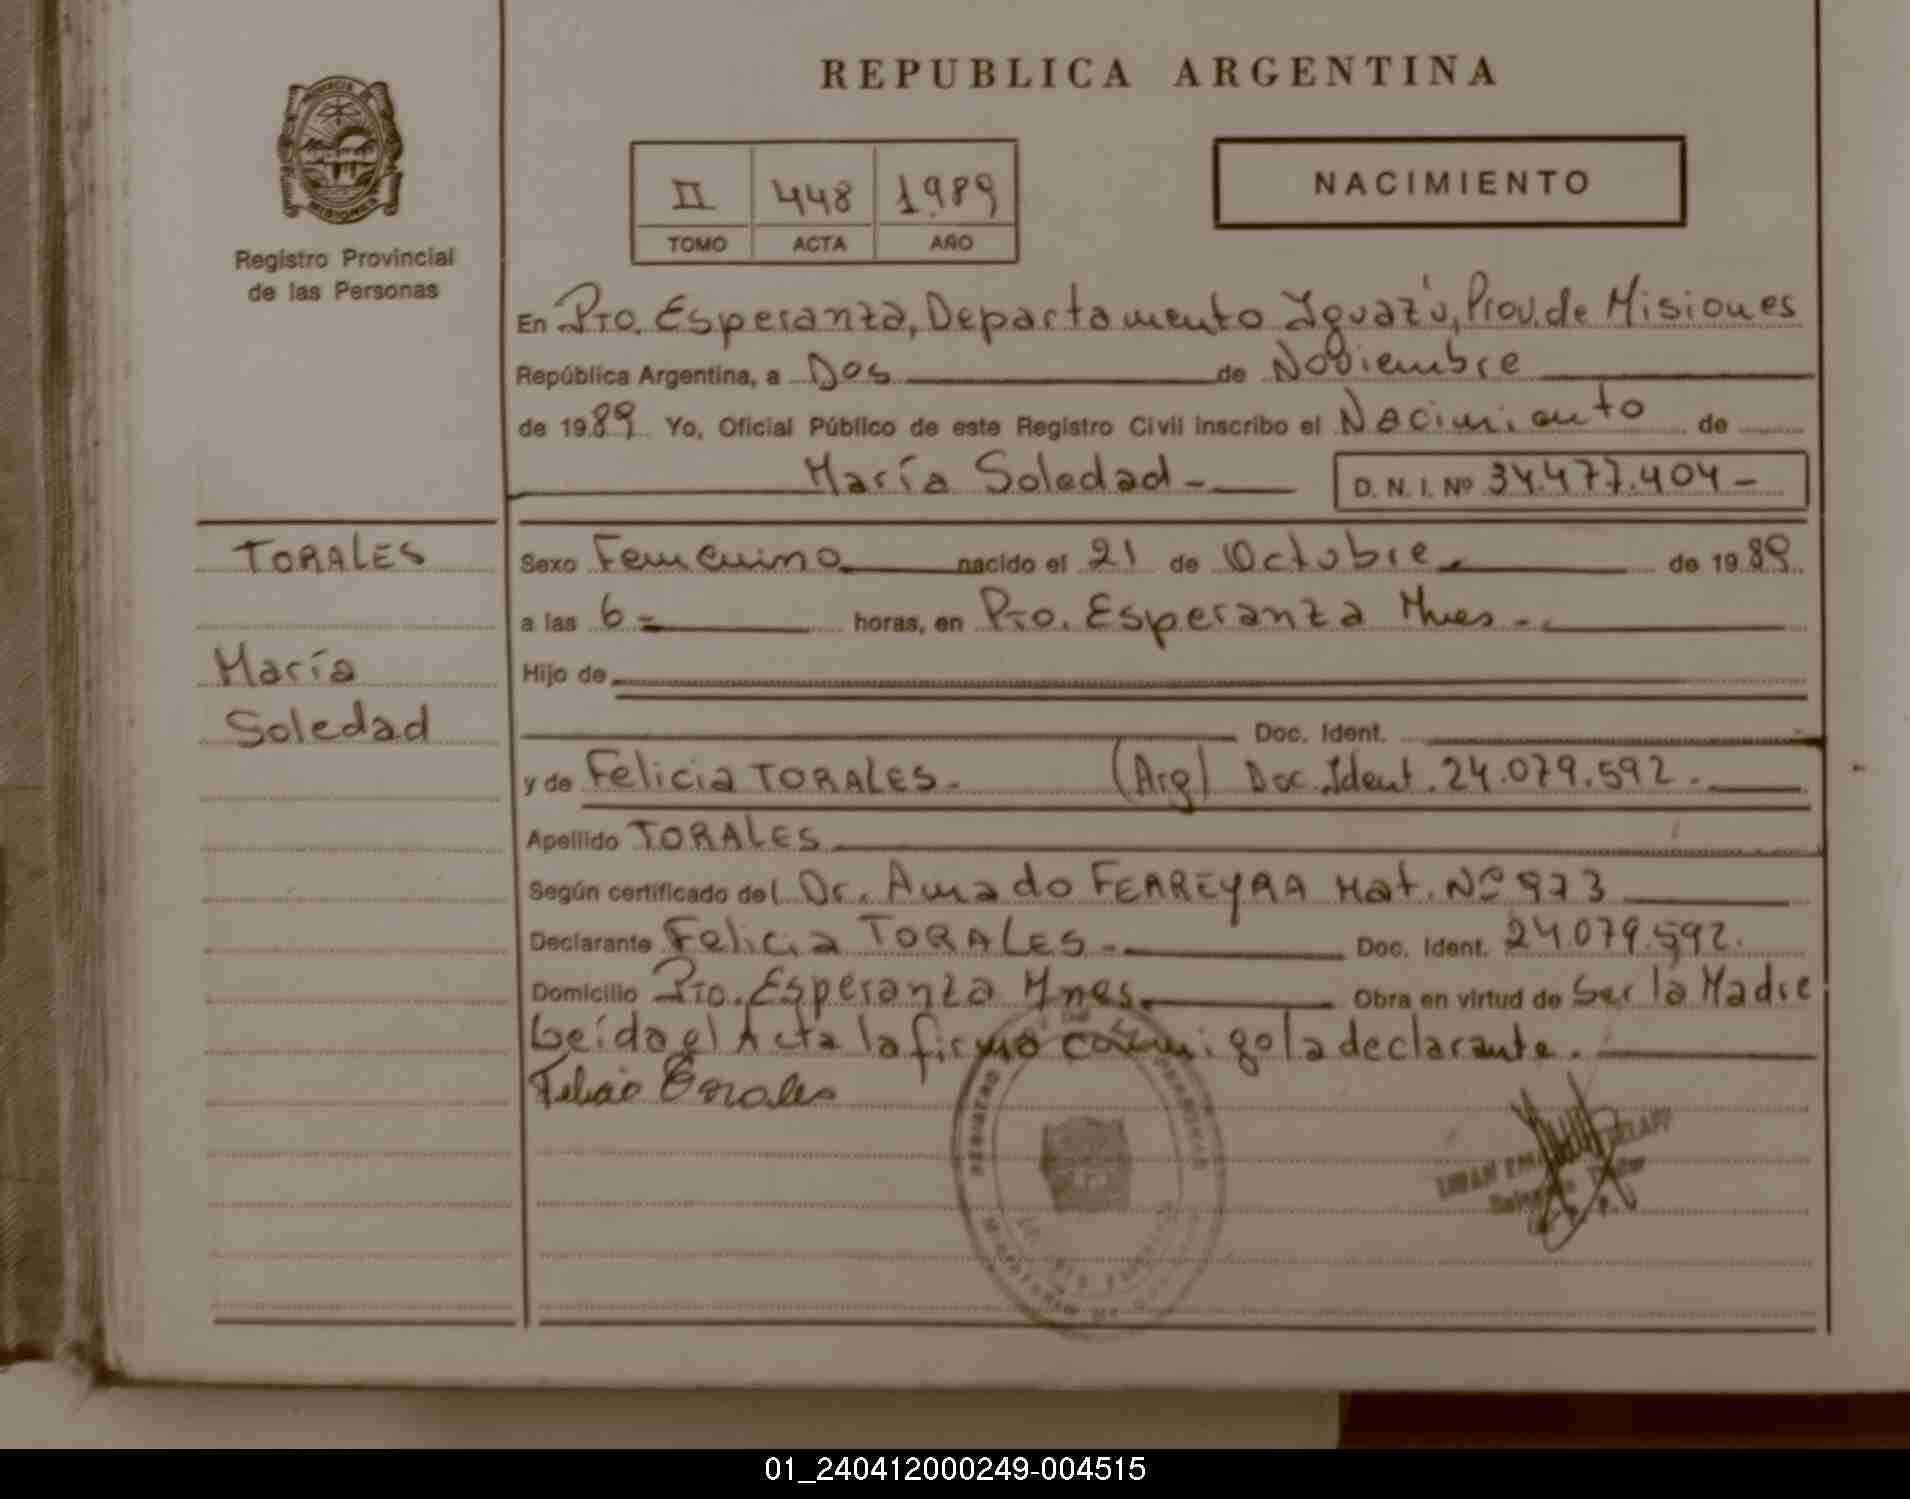 REPUBLICA ARGENTINA
II 448 1989
TOMO ACTA AÑO
NACIMIENTO
Registro Provincial
de las Personas
TORALES
María
Soledad
En Pto. Esperanza, Departamento Iguazú, Prov. de Misiones
República Argentina, a Dos de Noviembre
de 1989 Yo, Oficial Público de este Registro Civil inscribo el Nacimiento de
María Soledad - D. N. I. Nº 34.477.404 -
Sexo Femenino nacido el 21 de Octubre. de 1989
a las 6 = horas, en Pto. Esperanza Mnes -.
Hijo de
Doc. Ident.
y de Felicia TORALES. (Arg) Doc. Ident. 24.079.592.
Apellido TORALES
Según certificado del Dr. Amado FERREYRA Mat. Nº 973
Declarante Felicia TORALES - Doc. Ident. 24.079.592.
Domicilio Pto. Esperanza Mnes. Obra en virtud de Ser la Madre
Leída el Acta la firma conmigo la declarante.
Felicia Torales
01_240412000249-004515